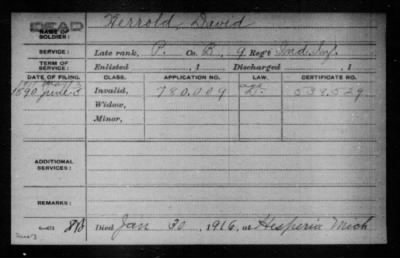 DEAD
NAME OF SOLDIER: Herrold, David
SERVICE: Late rank, P. Co. B, 9 Reg't Ind. Inf.
TERM OF SERVICE: Enlisted , 1 Discharged , 1
DATE OF FILING. CLASS. APPLICATION NO. LAW. CERTIFICATE NO.
1890 June 3 Invalid, 780.009 538.529
Widow,
Minor,
ADDITIONAL SERVICES:
REMARKS:
Died Jan 30, 1916, at Hesperia Mich